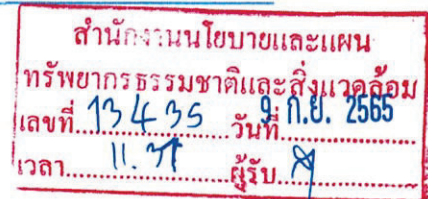 สำนักงานนโยบายและแผน
ทรัพยากรธรรมชาติและสิ่งแวดล้อม
เลขที่ 13435 วันที่ 9 ก.ย. 2565
เวลา 11.37 ผู้รับ